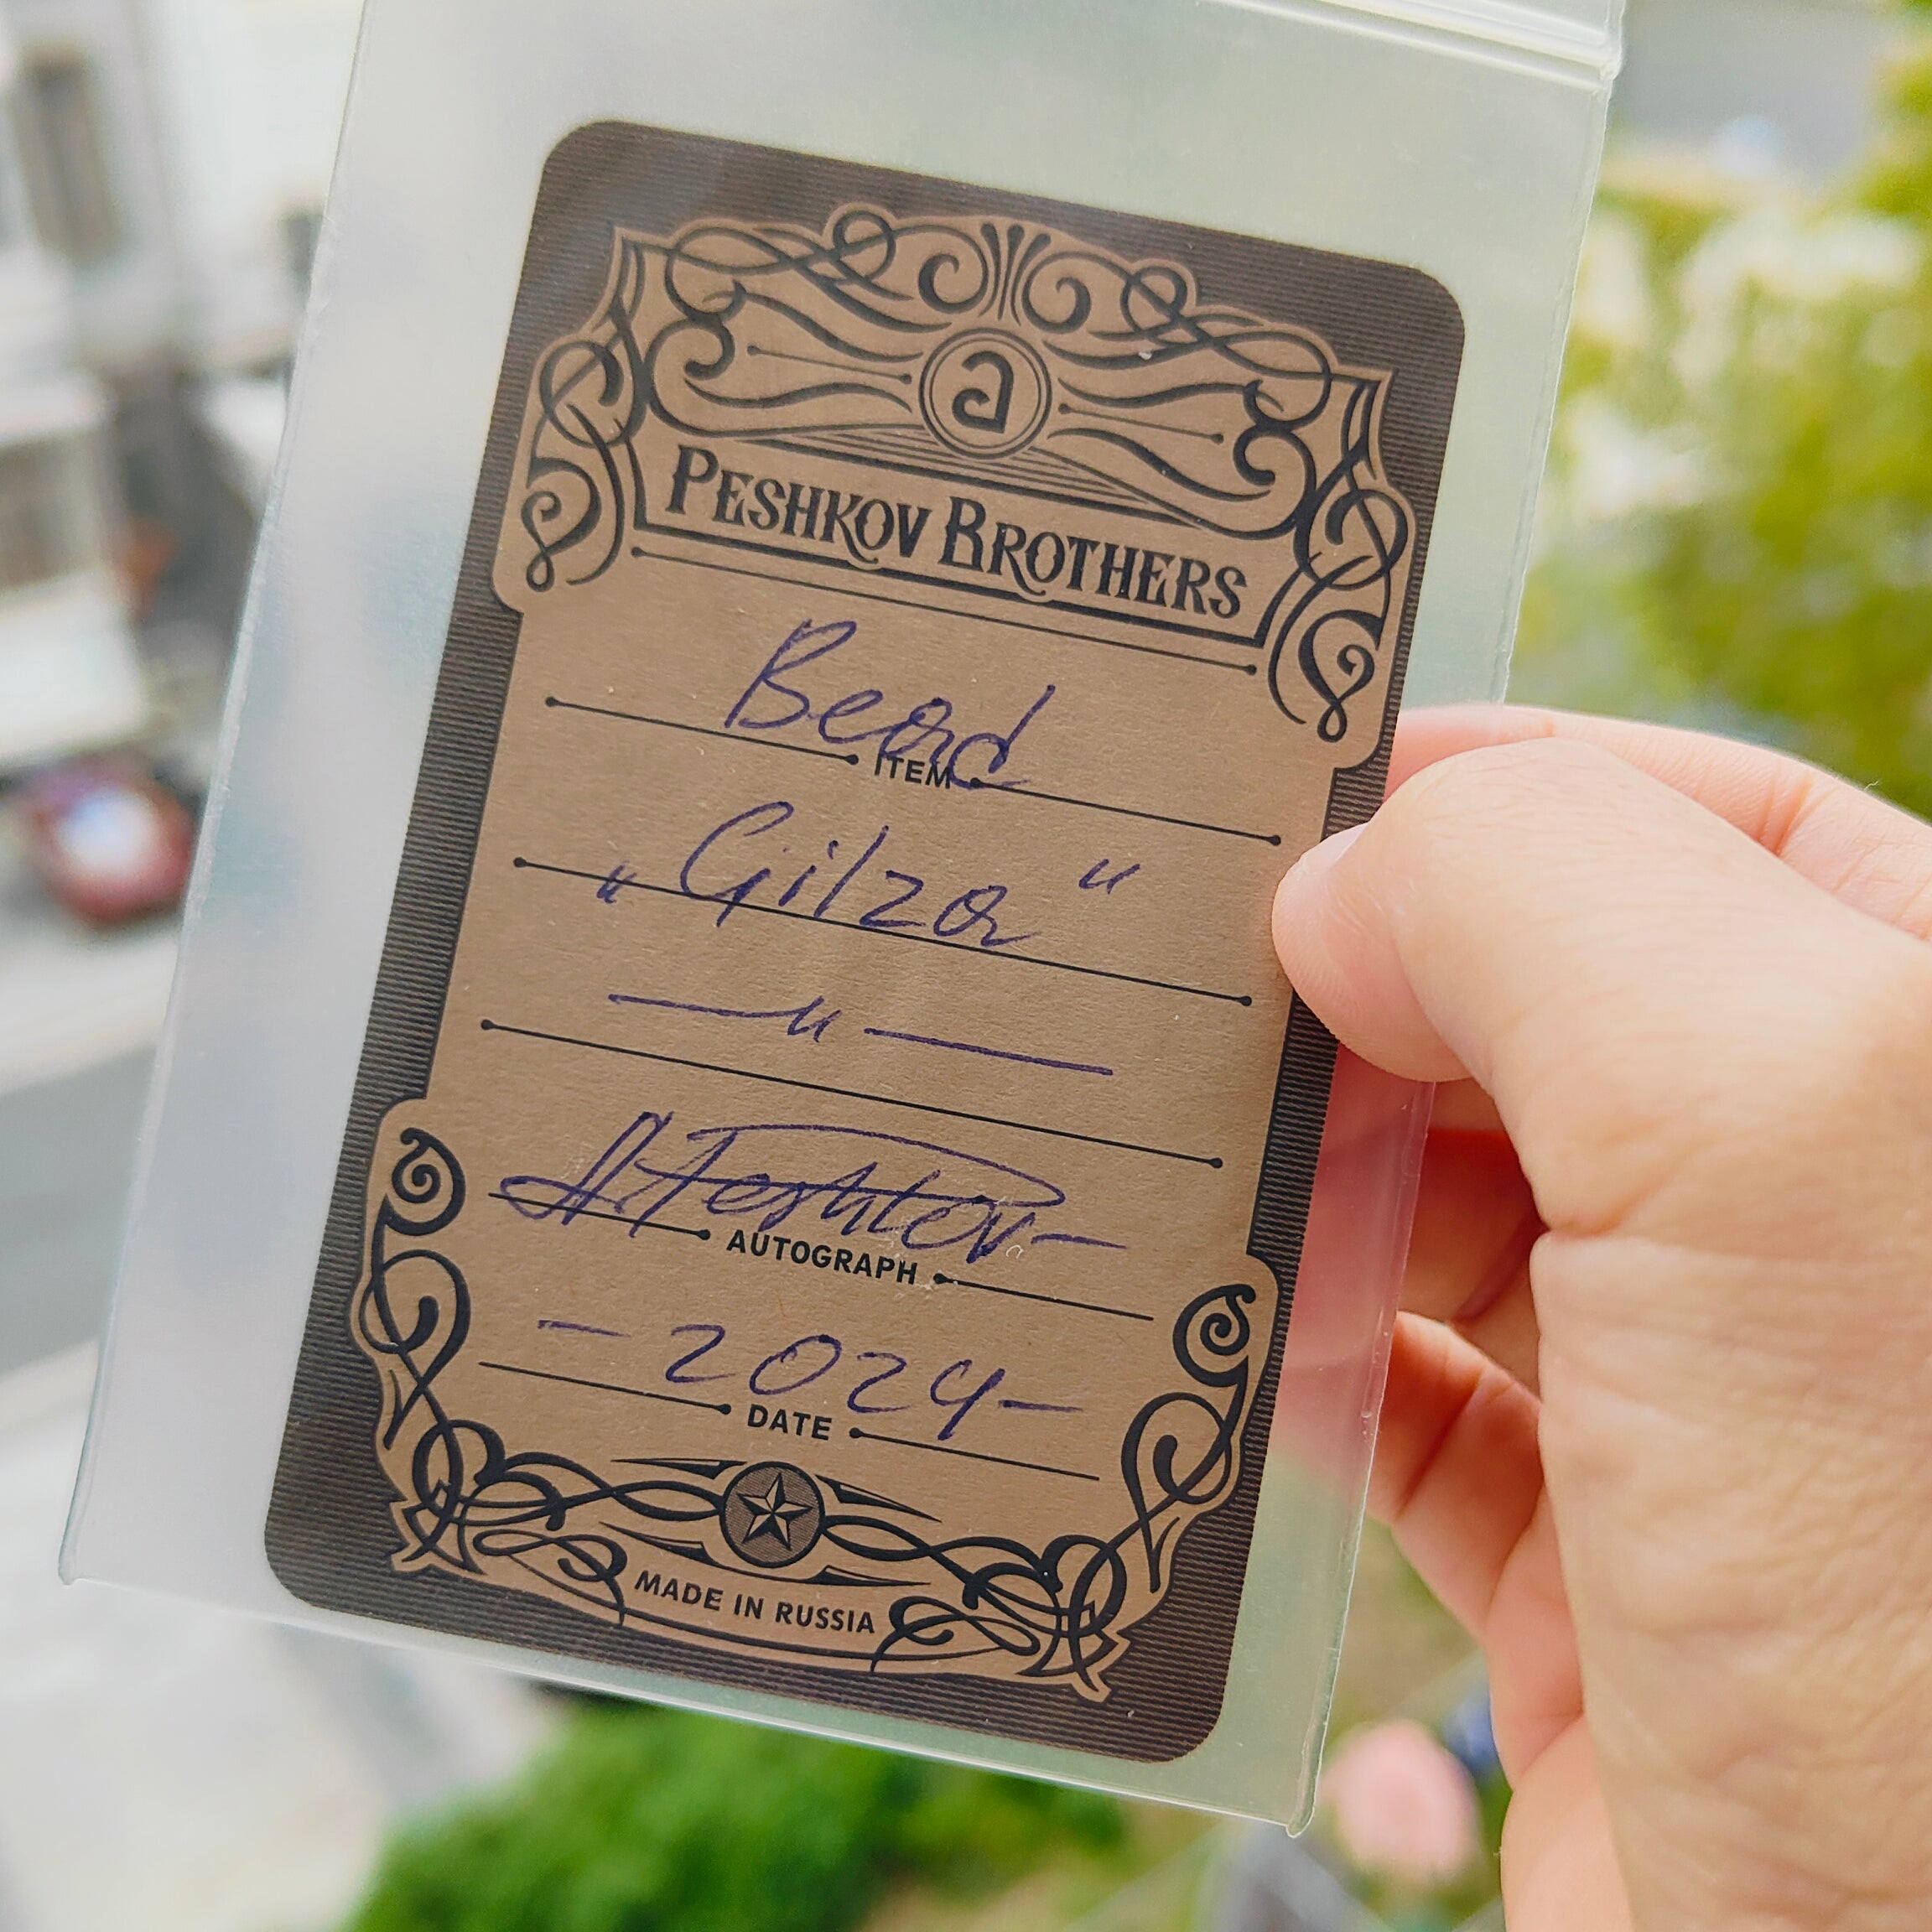 a
PESHKOV BROTHERS
Bead
ITEM
„Gilza"
—„—
A. Peshkov
AUTOGRAPH
-2024-
DATE
MADE IN RUSSIA